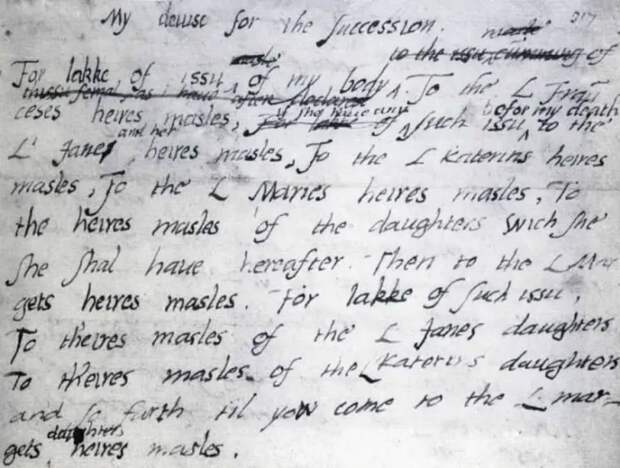 My deuise for the Succession.
317
For lakke of issu masle of my body to the issu cumming of
To the L Frau
ceses heires masles, For lakke of if she have any such issu befor my death to the
L' Janes and her heires masles, To the L Katerins heires
masles, To the L Maries heires masles, To
the heires masles of the daughters wich she
she shal haue hereafter. Then to the L Mar
gets heires masles. For lakke of such issu,
To theires masles of the L Janes daughters
To theires masles of the L Katerins daughters
and so forth til yow come to the L mar-
gets daughters heires masles.